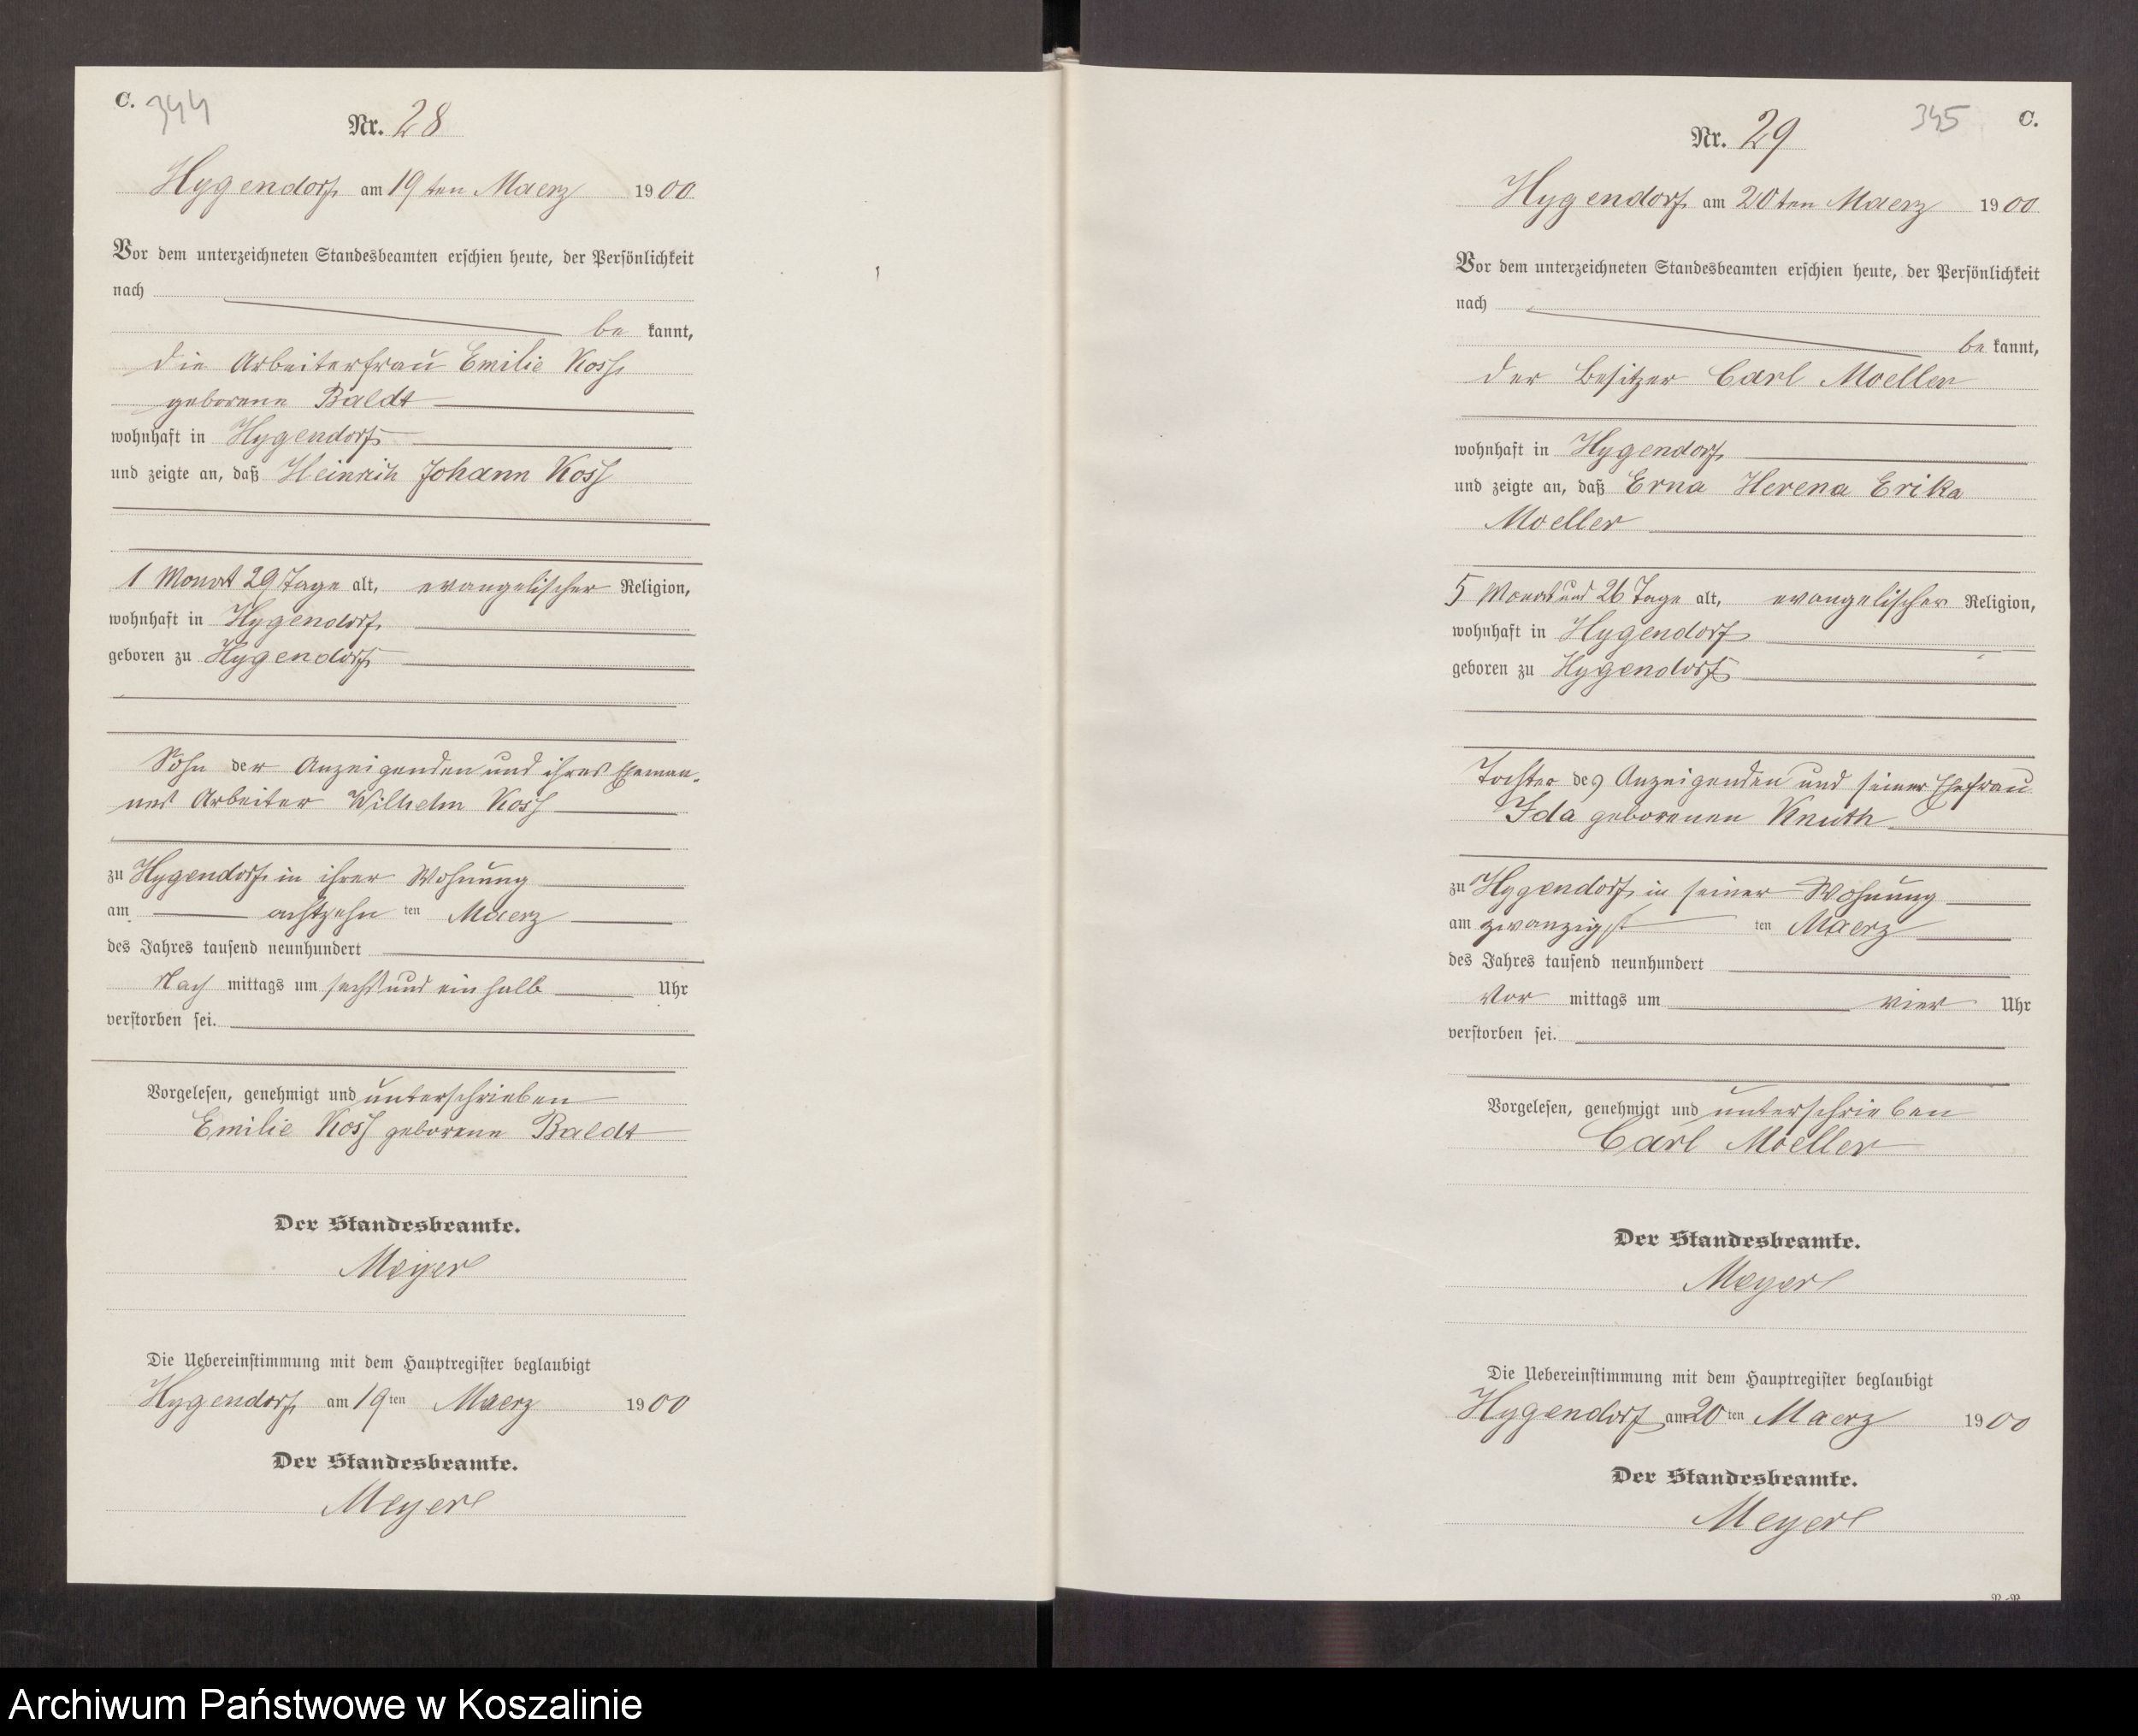 C. 344
Nr. 28
Hygendorf am 19 ten Maerz 1900
Vor dem unterzeichneten Standesbeamten erschien heute, der Persönlichkeit
nach
be kannt,
die Arbeiterfrau Emilie Koss
geborene Baldt
wohnhaft in Hygendorf
und zeigte an, daß Heinrich Johann Koss
1 Monat 29 Tage alt, evangelischer Religion,
wohnhaft in Hygendorf
geboren zu Hygendorf
Sohn der Anzeigenden und ihres Eheman-
nes Arbeiter Wilhelm Koss
zu Hygendorf in ihrer Wohnung
am achtzehn ten Maerz
des Jahres tausend neunhundert
Nach mittags um sechs und ein halb Uhr
verstorben sei.
Vorgelesen, genehmigt und unterschrieben
Emilie Koss geborene Baldt
Der Standesbeamte.
Meyer
Die Uebereinstimmung mit dem Hauptregister beglaubigt
Hygendorf am 19 ten Maerz 1900
Der Standesbeamte.
Meyer
345 C.
Nr. 29
Hygendorf am 20 ten Maerz 1900
Vor dem unterzeichneten Standesbeamten erschien heute, der Persönlichkeit
nach
be kannt,
der Besitzer Carl Moeller
wohnhaft in Hygendorf
und zeigte an, daß Erna Herena Erika
Moeller
5 Monat und 26 Tage alt, evangelischer Religion,
wohnhaft in Hygendorf
geboren zu Hygendorf
Tochter des Anzeigenden und seiner Ehefrau
Ida geborenen Knuth
zu Hygendorf in seiner Wohnung
am zwanzigst ten Maerz
des Jahres tausend neunhundert
Vor mittags um vier Uhr
verstorben sei.
Vorgelesen, genehmigt und unterschrieben
Carl Moeller
Der Standesbeamte.
Meyer
Die Uebereinstimmung mit dem Hauptregister beglaubigt
Hygendorf am 20 ten Maerz 1900
Der Standesbeamte.
Meyer
Archiwum Państwowe w Koszalinie